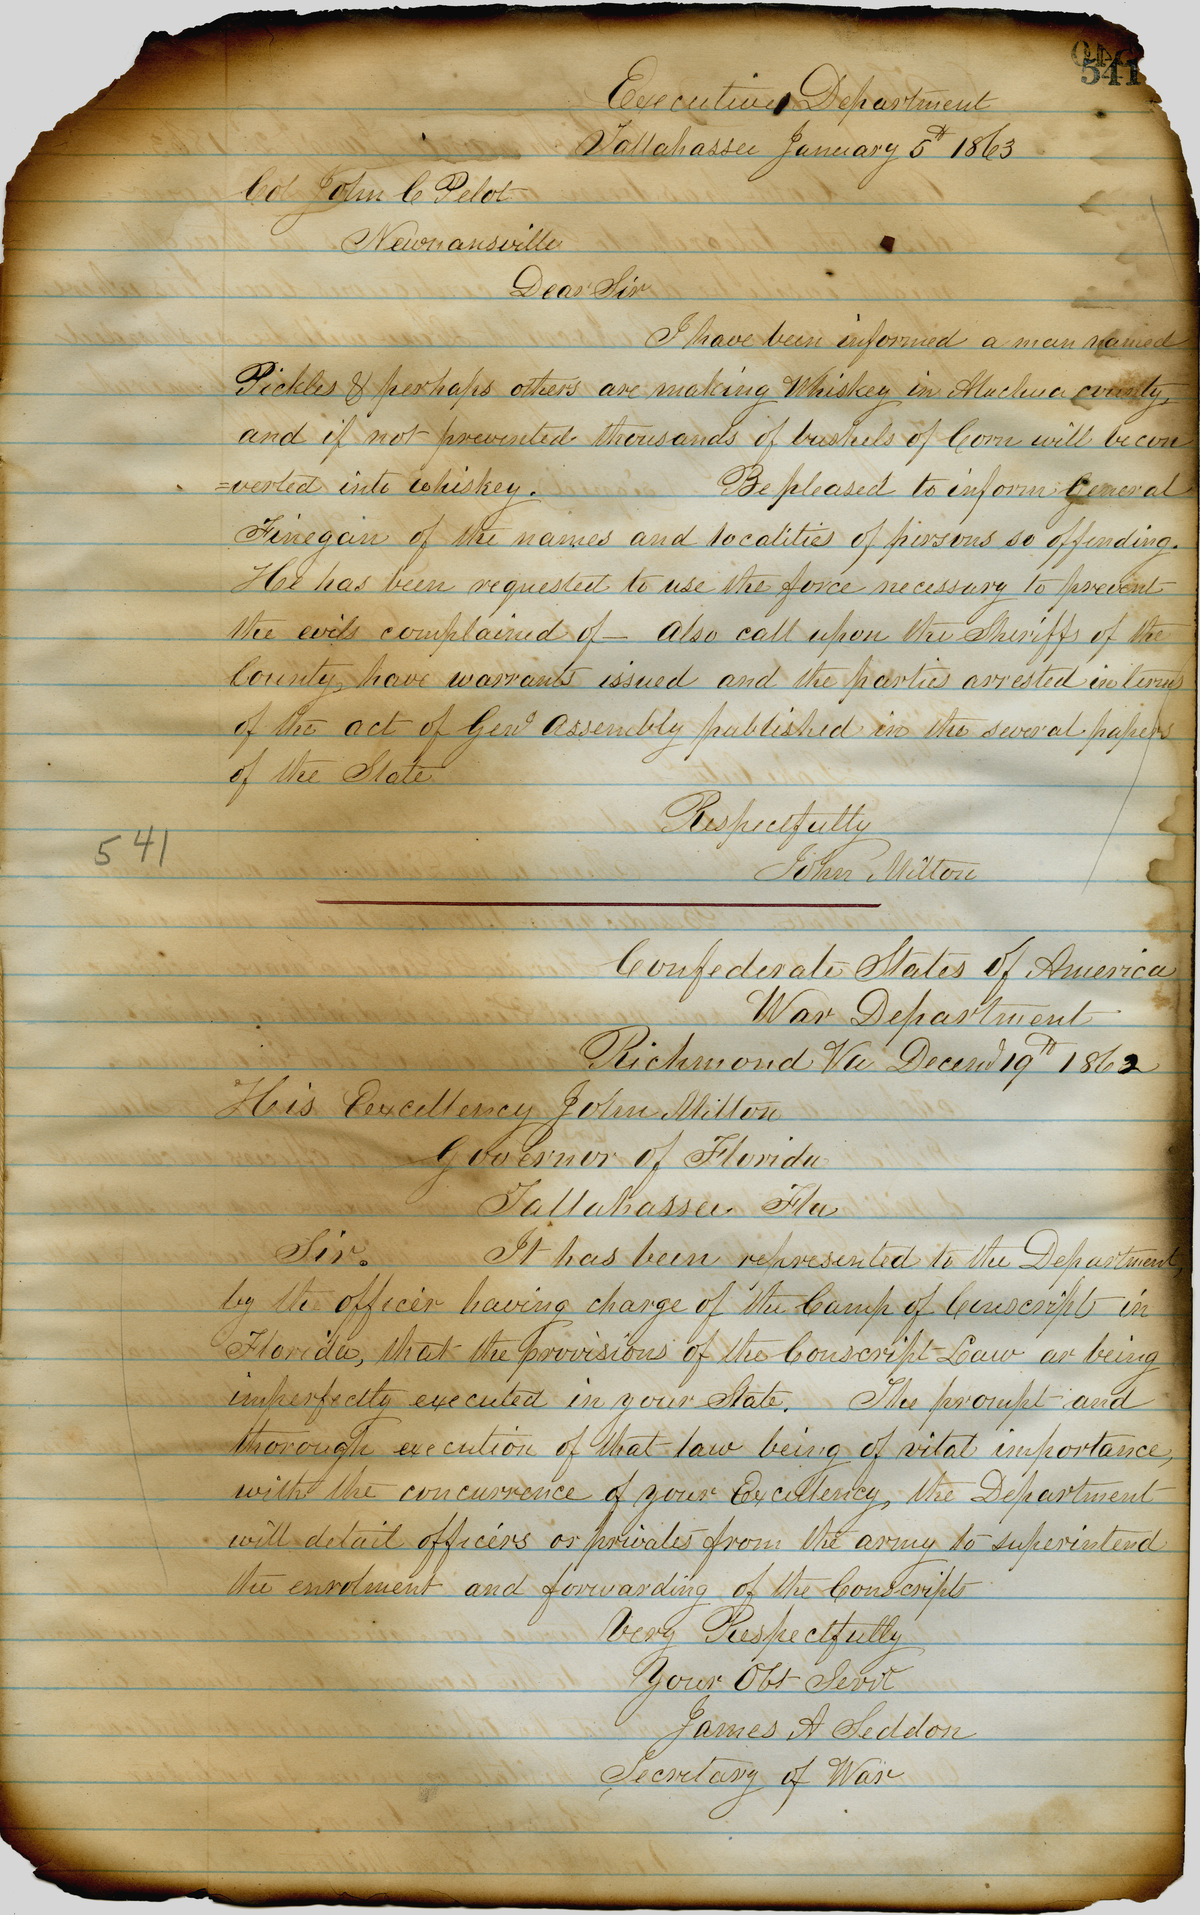 541
Executive Department
Tallahassee January 5th 1863
Col John C Pelot
Newnansville
Dear Sir
I have been informed a man named
Pickles & perhaps others are making Whiskey in Alachua county,
and if not prevented thousands of bushels of Corn will be con
=verted into whiskey. Be pleased to inform General
Finegan of the names and localities of persons so offending.
He has been requested to use the force necessary to prevent
the evils complained of— Also call upon the Sheriffs of the
County, have warrants issued and the parties arrested in terms
of the act of Genl Assembly published in the several papers
of the State
Respectfully
John Milton
541
Confederate States of America
War Department
Richmond Va Decemr 19th 1862
His Excellency John Milton
Governor of Florida
Tallahassee Fla
Sir. It has been represented to the Department,
by the officer having charge of the Camp of Conscript in
Florida, that the provisions of the Conscript Law ar being
imperfectly executed in your State. The prompt and
thorough execution of that law being of vital importance,
with the concurrence of your Excellency, the Department
will detail officers or privates from the army to superintend
the enrolment and forwarding of the Conscripts
Very Respectfully
Your Obt Servt
James A Seddon
Secretary of War